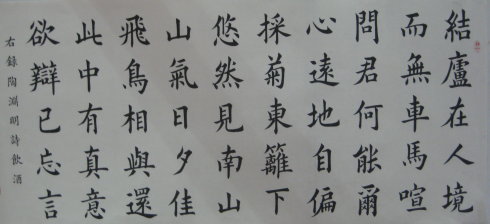 結廬在人境
而無車馬喧
問君何能爾
心遠地自偏
採菊東籬下
悠然見南山
山氣日夕佳
飛鳥相與還
此中有真意
欲辯已忘言
右錄陶淵明詩飲酒